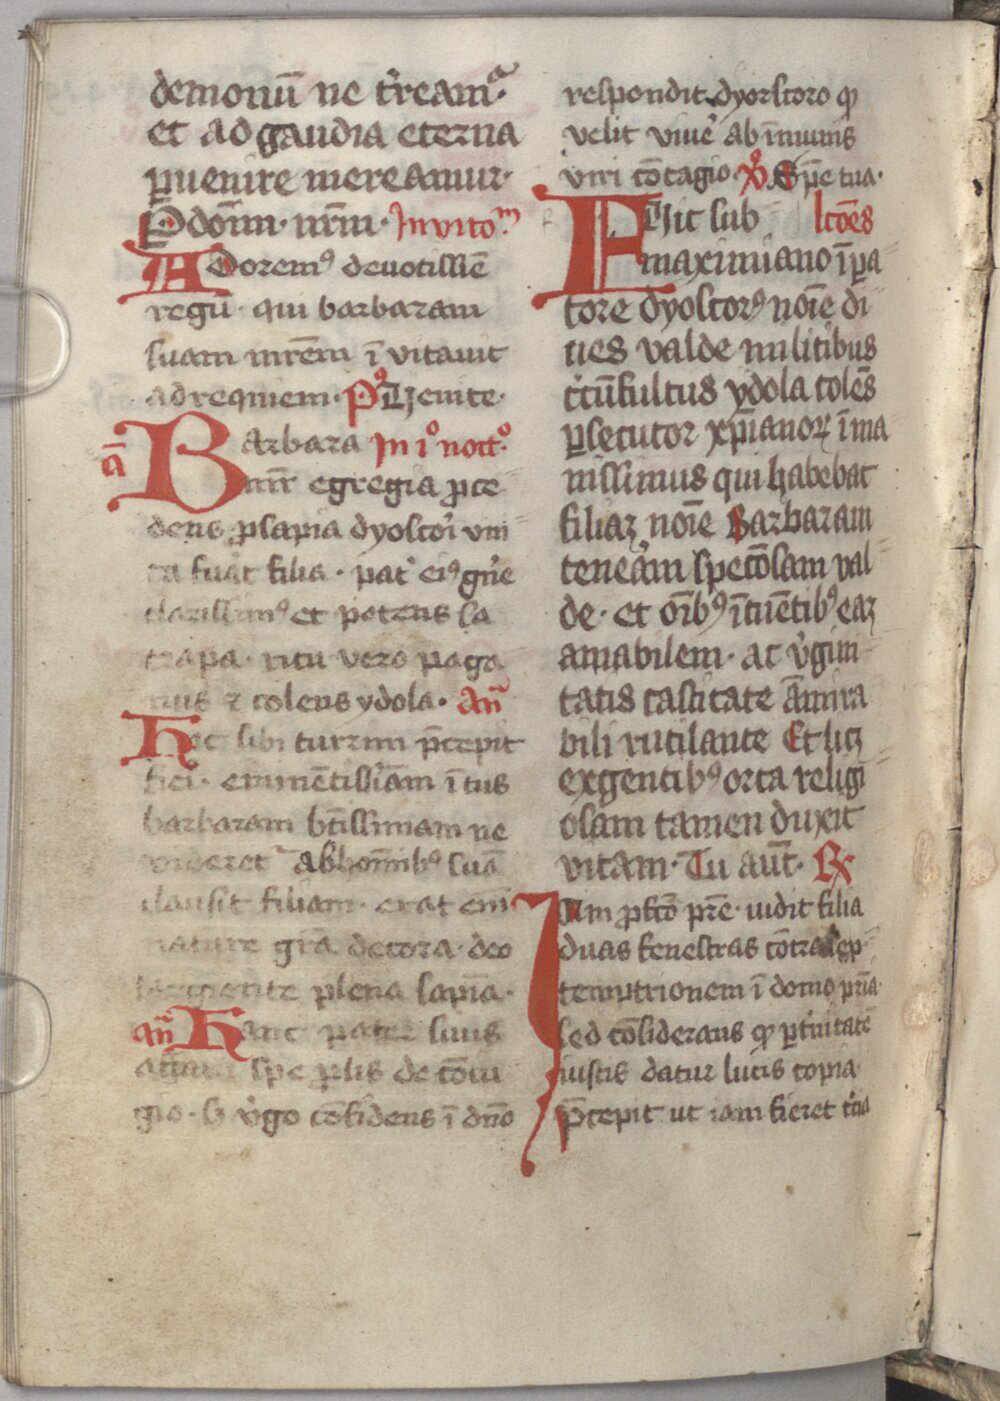 demoniū ne t'ream̄ᵃ·
et ad gaudia eterna
ꝑuenire mereamur·
P domī· nrm̄· Invitoᵐ
Adoremꝰ deuotissīē
regū· qui barbaram
suam mr̄em ī vitauit
ad requiem· Pꝰ Uenite·
ā Barbara In iº noctº·
mr̄ egregia ꝓce
dens ꝓsapia dyoscoři vni
ca fuāt filia· pat' eiꝰ gn̄e
clarissimꝰ et potens sa
trapa· ritu vero paga
nus ⁊ colens ydola· an̄
Hec sibi turrim p̄cepit
fiei· eminētissīam ītus
barbaram bt̄issimam ne
videret ab homībꝰ suā
clausit filiam· erat eni
nature grā decora· deo
largiente plena sapīa·
an̄ Hanc pater suus
spe ꝓlis de cōiu
gio· sꝫ v̓go cōfidens ī dn̄o
respondit dyorscoro ꝙ
velit viuē ab īmunis
viri cōtagio ꝟ Spe tua·
Fuit sub lcōes
maximiano īpa
tore dyoscorꝰ noīe di
ues valde militibus
c̄cūfultus ydola colēs
ꝑsecutor xp̄ianoꝝ īma
nissimus qui habebat
filiaꝫ noīe Barbaram
teneram specōsam val
de· et oībꝰ ītuētibꝰ eaꝫ
amabilem· ac v̓gini
tatis castitate āmira
bili rutilante Et licꝫ
ex gentibꝰ orta religi
osam tamen duxit
vitam· Tu aūt· ℞
Iam ꝓfcō pr̄e· uidit filia
duas fenestras cōtra sep
temptrionem ī domo pr̄ia
sed cōsiderans ꝙ ꝑ t'nitatē
iustis datur lucis copia
p̄cepit ut iam fieret t'cia